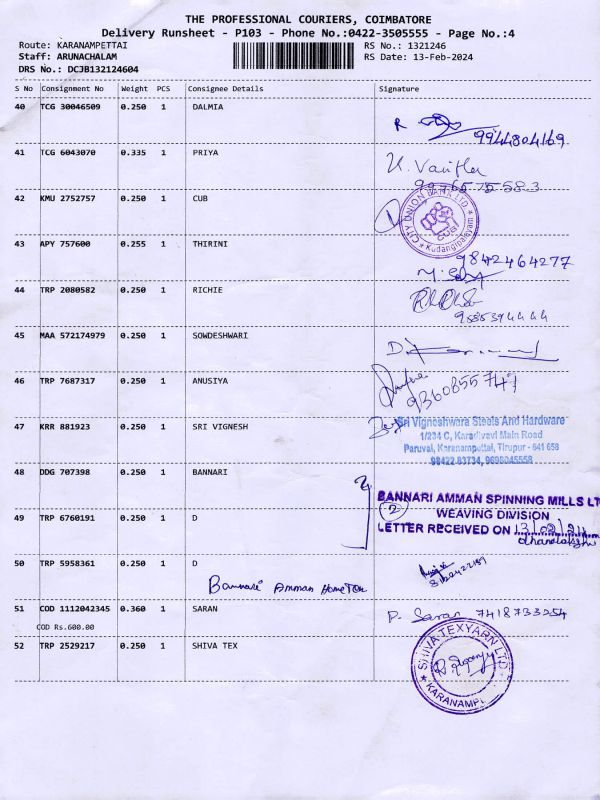 THE PROFESSIONAL COURIERS, COIMBATORE
Delivery Runsheet - P103 - Phone No.:0422-3505555 - Page No.:4
Route: KARANAMPETTAI
RS No.: 1321246
Staff: ARUNACHALAM
RS Date: 13-Feb-2024
DRS No.: DCJB132124604
S No Consignment No Weight PCS Consignee Details Signature
40 TCG 30046509 0.250 1 DALMIA
9944804169
41 TCG 6043070 0.335 1 PRIYA
42 KMU 2752757 0.250 1 CUB
CITY UNION BANK LTD
CUB
Kodangipalayam
43 APY 757600 0.255 1 THIRINI
9842464277
44 TRP 2080582 0.250 1 RICHIE
45 MAA 572174979 0.250 1 SOWDESHWARI
46 TRP 7687317 0.250 1 ANUSIYA
9360855747
47 KRR 881923 0.250 1 SRI VIGNESH
Sri Vigneshwara Steels And Hardware
1/234 C, Karadivavi Main Road
Paruvai, Karanampettai, Tirupur - 641 658
98422 83734, 9698045558
48 DDG 707398 0.250 1 BANNARI
BANNARI AMMAN SPINNING MILLS LT
2 WEAVING DIVISION
LETTER RECEIVED ON 13/02/24
49 TRP 6760191 0.250 1 D
dhanalakshmi
50 TRP 5958361 0.250 1 D
Bannari Amman HomeTex
51 COD 1112042345 0.360 1 SARAN
P. Saran 7418733254
COD Rs.600.00
52 TRP 2529217 0.250 1 SHIVA TEX
SHIVA TEXYARN LTD
KARANAMPET